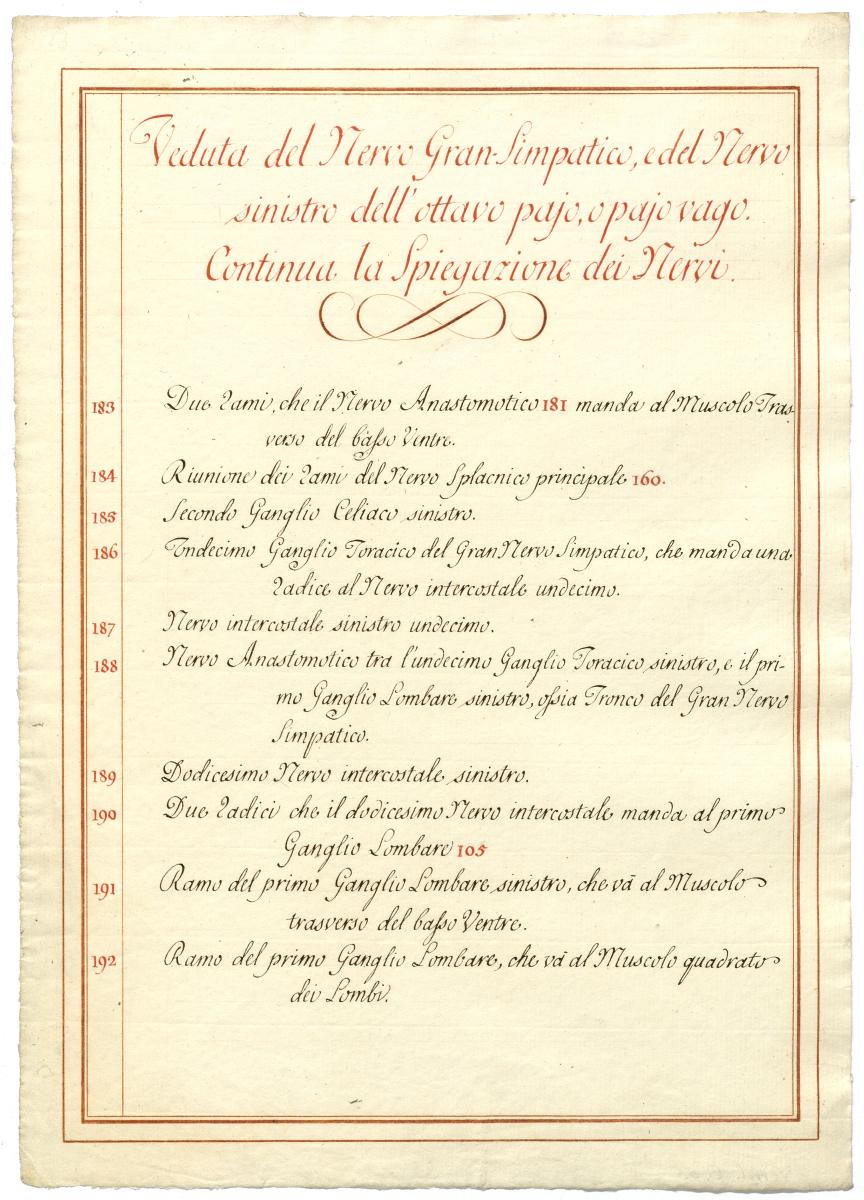 Veduta del Nervo Gran-Simpatico, e del Nervo
sinistro dell'ottavo pajo, o pajo vago.
Continua la Spiegazione dei Nervi.
183 Due rami, che il Nervo Anastomotico 181 manda al Muscolo Tras-
verso del basso Ventre.
184 Riunione dei rami del Nervo Splacnico principale 160.
185 Secondo Ganglio Celiaco sinistro.
186 Undecimo Ganglio Toracico del Gran Nervo Simpatico, che manda una
radice al Nervo intercostale undecimo.
187 Nervo intercostale sinistro undecimo.
188 Nervo Anastomotico tra l'undecimo Ganglio Toracico sinistro, e il pri-
mo Ganglio Lombare sinistro, ossia Tronco del Gran Nervo
Simpatico.
189 Dodicesimo Nervo intercostale sinistro.
190 Due radici che il dodicesimo Nervo intercostale manda al primo
Ganglio Lombare 105
191 Ramo del primo Ganglio Lombare sinistro, che và al Muscolo
trasverso del basso Ventre.
192 Ramo del primo Ganglio Lombare, che và al Muscolo quadrato
dei Lombi.